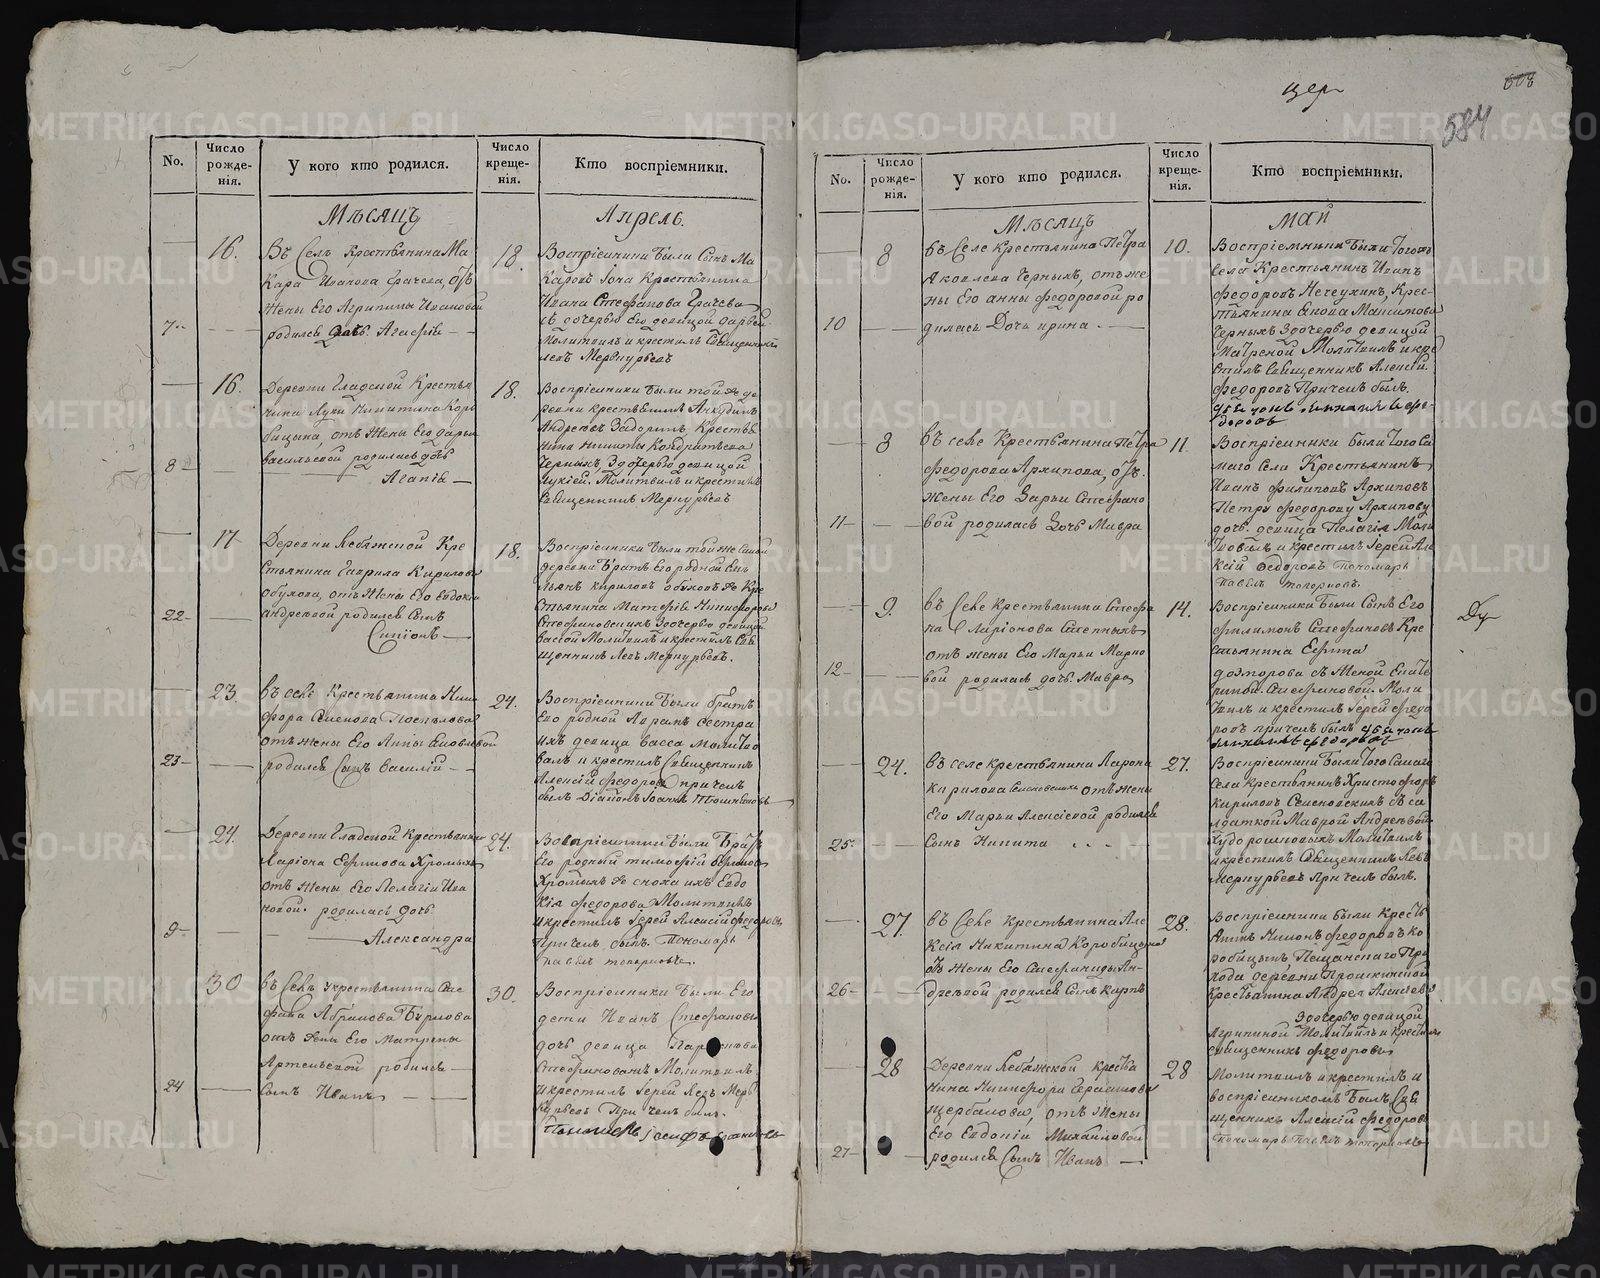 цер
584
No.
Число рожде-нія.
У кого кто родился.
Число креще-нія.
Кто воспріемники.
Мѣсяцъ
Апрель.
16.
Въ Селѣ крестьянина Ма
кара Иванова Грачева, отъ
жены Его Агрипины Ивановой
7
родилась дочь Агафія
18.
Воспріемники были сынъ Ма
каровъ Іона крестьянина
Ивана Стефанова Грачева
съ дочерью Его девицой Дарьей
Молитвилъ и крестилъ Священникъ
Левъ Меркурьевъ
16.
Деревни Гладской Крестья
нина Луки Никитина Коро
бицына, отъ жены Его Дарьи
8
васильевой родилась дочь
Агапія
18.
Воспріемники были той же де
ревни крестьянинъ
Андреевъ Задоринъ, Крестья
нина Никиты Кондратьева
Черныхъ, Здочерью девицой
Лукіей. Молитвилъ и крестилъ
Священникъ Меркурьевъ
17
Деревни Лебяжской Кре
стьянина Гаврила Кирилова
обухова, отъ жены Его Евдокіи
22
андреевой родился сынъ
18.
Воспріемники были той же самой
деревни Братъ Его родной Емь
льянъ кириловъ обуховъ же Кре
стьянина Матфія Никифорова
Стефановскихъ Здочерью девицой
Вассой Молитвилъ и крестилъ Свя
щенникъ Левъ Меркурьевъ.
23
въ селе Крестьянина Ники
фора Семенова Поспелова
отъ жены Его Анны Яковлевой
23
родился Сынъ Василій
24.
Воспріемники были братъ
Его родной Абрамъ сестра
ихъ девица Васса Молитво
валъ и крестилъ Священникъ
Алексій Федоровъ при чемъ
былъ Діаконъ Іоаннъ
24.
Деревни Гладской крестьянина
Ларіона Ефимова Хромыхъ
отъ жены Его Пелагіи Ива
новой. родилась дочь
9
Александра
24.
Воспріемники Были Братъ
Его родной тимофій Ефимовъ
Хромыхъ же сноха ихъ Евдо
кія федорова Молитвилъ
и крестилъ Іерей Алексій федоровъ
Причемъ былъ Пономарь
павелъ топорковъ.
30
въ Селе Укрестьянина Сте
фана Абрамова Бурнова
отъ жены Его Матрены
Артемьевой родился
24
сынъ Иванъ
30.
Воспріемники Были Его
дети Иванъ Стефановъ
дочь девица
Стефановыхъ Молитвилъ
и крестилъ Іерей Левъ Мерь
курьевъ При чемъ былъ.
No.
Число рожде-нія.
У кого кто родился.
Число креще-нія.
Кто воспріемники.
Мѣсяцъ
май
8
въ Селе крестьянина Петра
Яковлева Черныхъ, отъ же
ны Его анны федоровой ро
10
дилась Дочь ирина.
10.
Воспріемники были тогожъ
Села Крестьянинъ Иванъ
федоровъ Нечеухинъ, Крес
тьянина Якова Максимова
Черныхъ Здочерью девицой
Матреной Молитвилъ и кре
стилъ Священникъ Алексій
федоровъ Причемъ былъ
8
въ селе Крестьянина Петра
федорова Архипова, отъ
жены Его Дарьи Стефано
11
вой родилась дочь Мавра
11
Воспріемники были того са
маго Села Крестьянинъ
Иванъ филиповъ Архиповъ
Петру федорову Архипову
дочь девица Пелагія Моли
твовалъ и крестилъ Іерей Але
ксій Федоровъ Пономарь
павелъ топорковъ.
9.
въ Селе крестьянина Стефа
на Ларіонова Степныхъ
отъ жены Его Марьи Марко
12
вой родилась дочь Мавра
14.
Воспріемники были Сынъ Его
филимонъ Стефановъ Кре
стьянина Ефима
съ женой Екате
риной Стефановой. Моли
твилъ и крестилъ Іерей федо
ровъ причемъ былъ дьячокъ
24.
въ селе крестьянина Ларіона
Кирилова Семеновскихъ отъ жены
Его Марьи Алексіевой родился
25
Сынъ Никита
27.
Воспріемники были того самаго
Села крестьянинъ Христофоръ
Кириловъ Семеновскихъ съ са
лдаткой Маврой Андреевой
Худорошковыхъ Молитвилъ
и крестилъ Священникъ Левъ
Меркурьевъ При чемъ былъ.
27.
въ Селе крестьянина Але
ксія Никитина Коробицына
отъ жены Его Стефаниды Ан-
26
дреевой родился сынъ карпъ
28.
Воспріемники были Крестья
нинъ Нимонъ федоровъ ко
робицынъ Пещанскаго При
хода деревни Прошкиной
крестьянина Андрея Алексіева
Здочерью девицой
Агрипиной Молитвилъ и крестилъ
священникъ федоровъ
28
Деревни Лебяжской кресть
янина Никифора Герасимова
щербакова, отъ жены
Его Евдокіи Михайловой
27
родился Сынъ Иванъ
28
Молитвилъ и крестилъ и
воспріемникомъ былъ Свя
щенникъ Алексій федоровъ
Пономарь Павелъ топорковъ